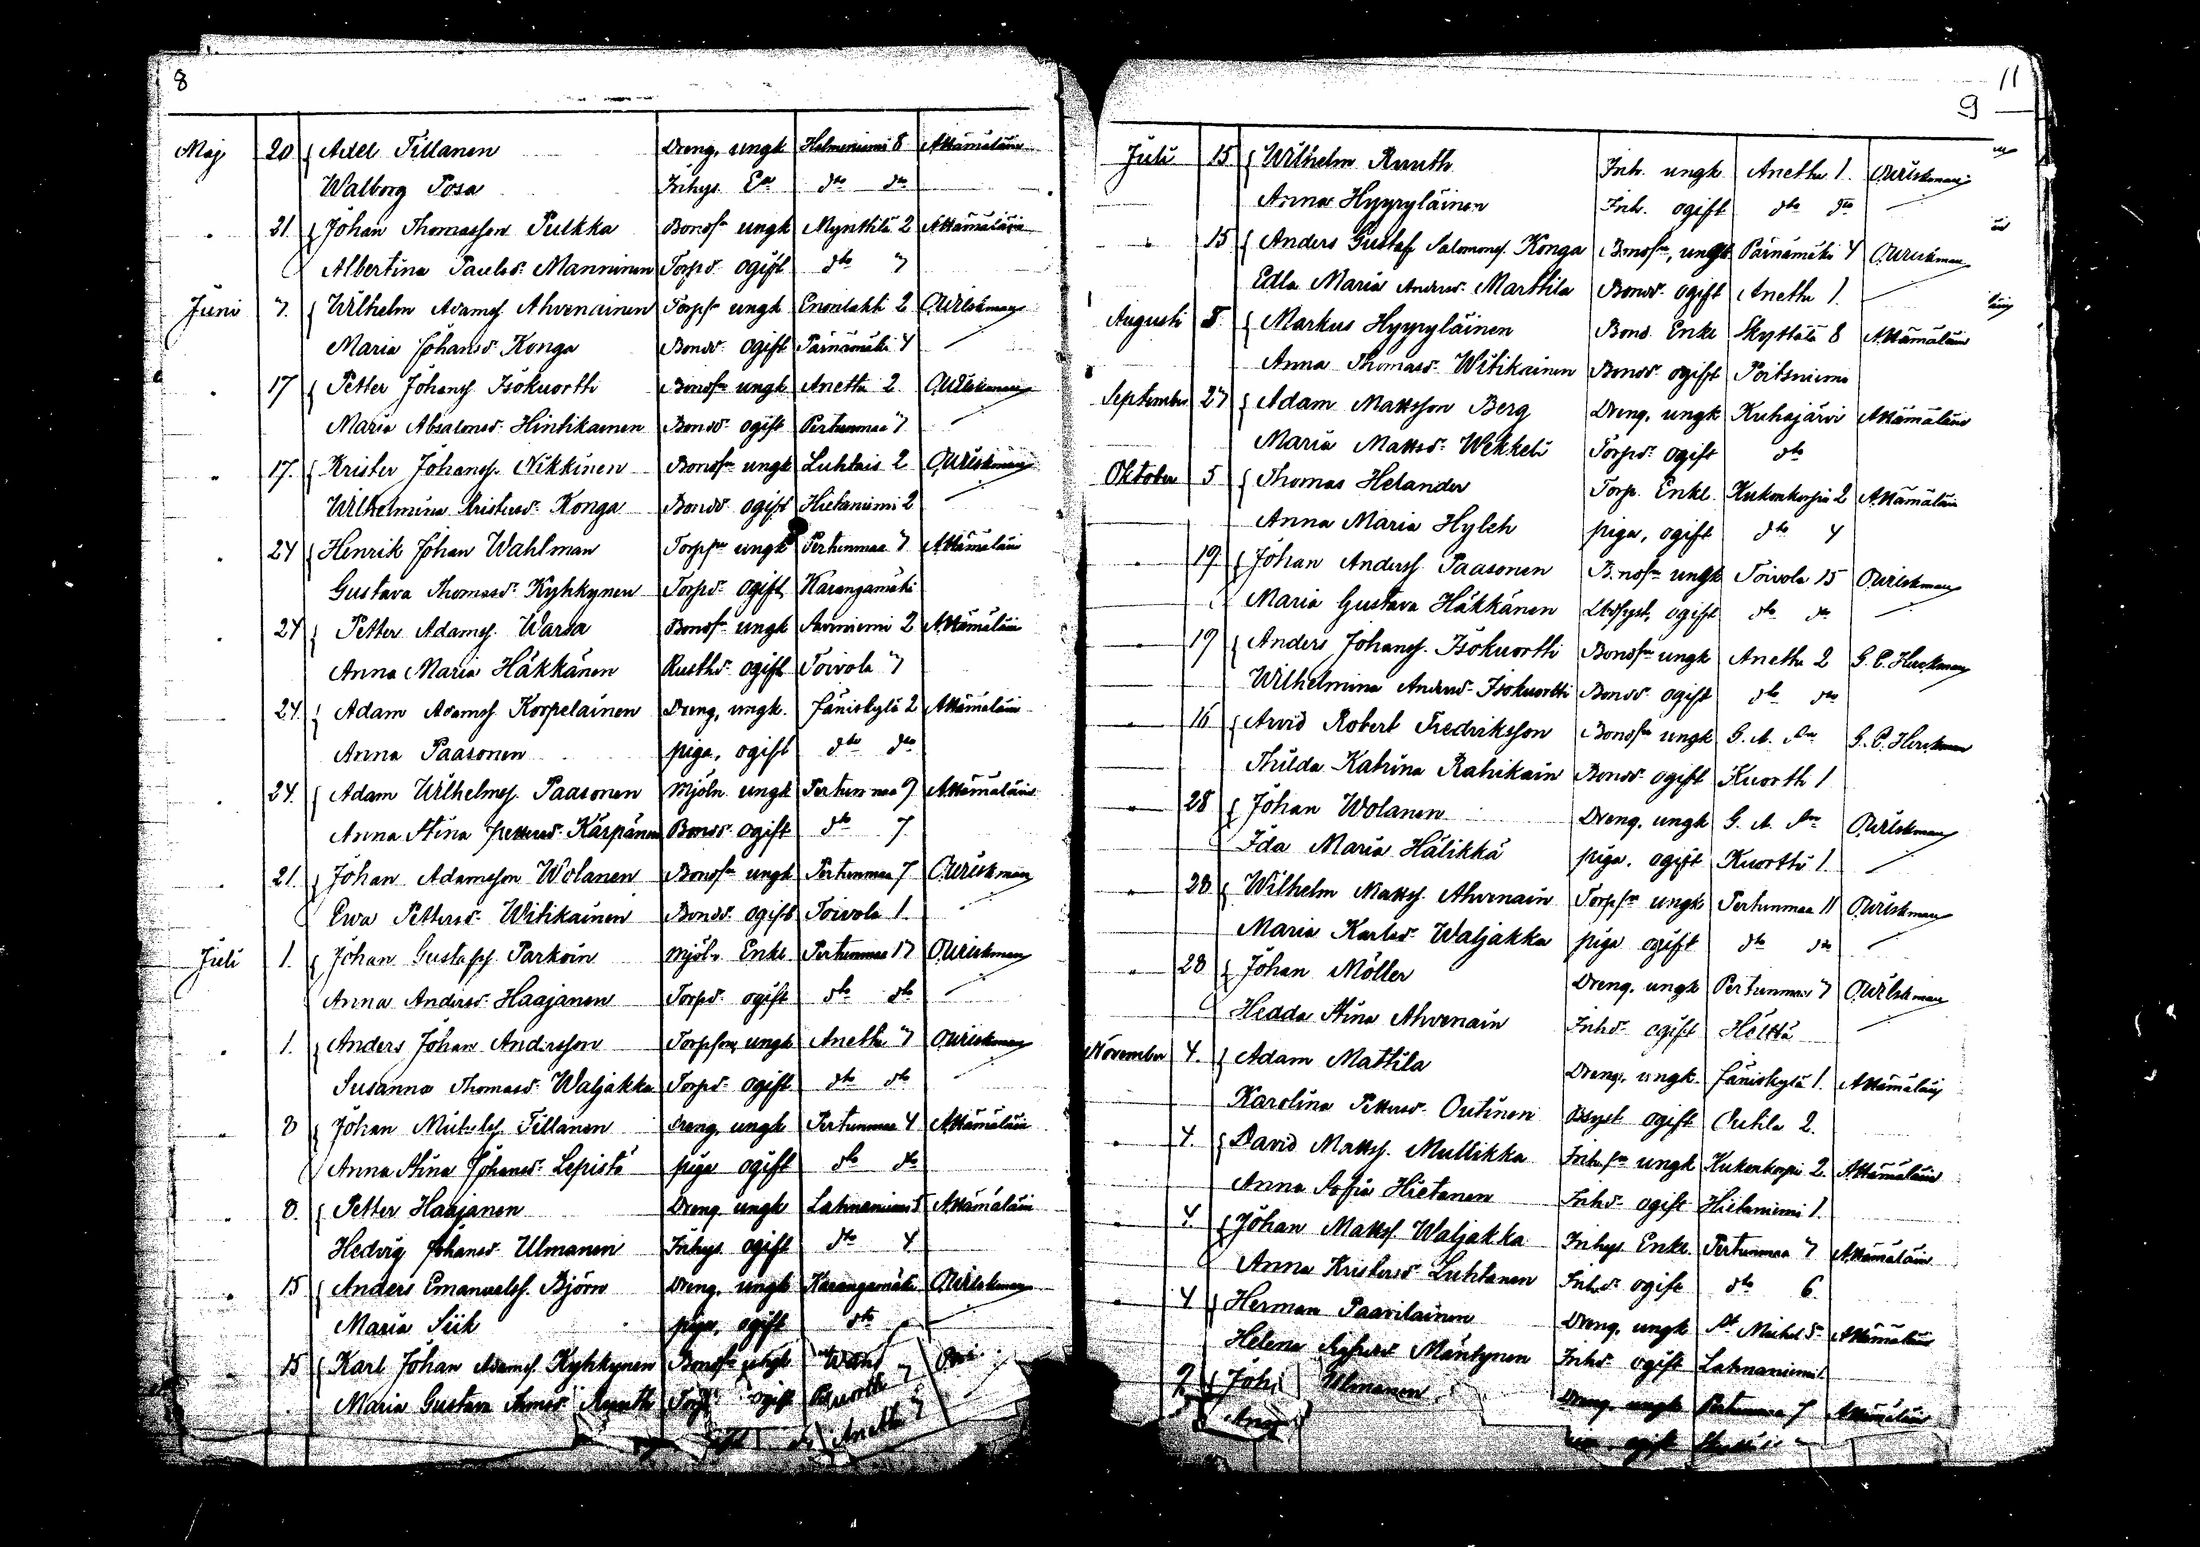 8
Maj 20 Axel Tillanen Dreng, ungk Helmeniemi 8 A Hämäläin
Walborg Posa Inhys. Ea dto dto
" 21. Johan Thomasson Pulkka Bondsn ungk Mynttilä 2 A Hämäläin
Albertina Paulsd. Manninen Torpd. ogift dto 7
Juni 7. Wilhelm Adamss. Ahvenainen Torpsn ungk Enonlahti 2
Maria Johansd. Konga Bondd. ogift Parnämäki 4
" 17 Petter Johanss. Isokuortti Bondsn ungk Anetta 2
Maria Absalonsd. Hintikainen Bondd. ogift Pertunmaa 7
" 17. Krister Johanss. Nikkinen Bondsn ungk Luhtais 2
Wilhelmina Kristersd. Konga Bondd. ogift Hietaniemi 2
" 24 Henrik Johan Wahlman Torpsn ungk Pertunmaa 7 A Hämäläin
Gustava Thomasd. Kyhkynen Torpd. ogift Karangamäki
" 24 Petter Adamss. Warsa Bondsn ungk 2 A Hämäläin
Anna Maria Häkkänen Rusthd. ogift Toivola 7
" 24. Adam Adamss. Korpelainen Dreng, ungk. Jäniskylä 2 A Hämäläin
Anna Paasonen piga, ogift dto dto
" 24. Adam Wilhelmss. Paasonen Mjöln. ungk Pertunmaa 9 A Hämäläin
Anna Stina Pettersd. Kärpänen Bondd. ogift dto 7
" 21. Johan Adamsson Wolanen Bondsn ungk Pertunmaa 7
Ewa Pettersd. Witikainen Bondd. ogift Toivola 1.
Juli 1. Johan Gustafss. Parkoin Mjöln. Enkl. Pertunmaa 17
Anna Andersd. Haajanen Torpd. ogift dto dto
" 1. Anders Johan Andersson Torpson, ungk Anetta 7
Susanna Thomasd. Waljakka Torpd. ogift dto dto
" 8 Johan Michelss. Tillanen Dreng, ungk Pertunmaa 4 A Hämäläin
Anna Stina Johansd. Lepistö piga ogift dto dto
" 8. Petter Haajanen Dreng. ungk Lahnaniemi 5 A Hämäläin
Hedvig Johansd. Ulmanen Inhys. ogift dto 4
" 15 Anders Emanuelss. Björn Dreng, ungk Karangamäki
Maria Siik piga, ogift dto
15 Karl Johan Adamss. Kyhkynen Bondsn ungk
Maria Gustava Thomsd. Ruuth Torpd. ogift Anetta 7
11
9
Juli 15 Wilhelm Ruuth Inh. ungk. Anetta 1.
Anna Hyyryläinen Inh. ogift dto dto
" 15 Anders Gustaf Salomonss. Konga Bondsn, ungk Parnämäki 4
Edla Maria Andersd. Marttila Bondd. ogift Anetta 1.
Augusti 5. Markus Hyyryläinen Bond. Enkl Skyttälä 8 A Hämäläin
Anna Thomasd. Witikainen Bondd. ogift Poitsniemi
September 27 Adam Mattsson Berg Dreng, ungk Kuhajärvi A Hämäläin
Maria Mattsd. Wekkeli Torpd. ogift dto
Oktober 5 Thomas Helander Torp. Enkl. Kukonkorpi 2 A Hämäläin
Anna Maria Hyleh piga, ogift dto 4
" 19. Johan Anderss. Paasonen Bondsn ungk Toivola 15
Maria Gustava Häkkänen ogift dto do
" 19 Anders Johanss. Isokuortti Bondsn ungk Anetta 2
Wilhelmina Andersd. Isokuortti Bondd. ogift dto dto
" 16 Arvid Robert Fredriksson Bondsn ungk G. A.
Thilda Katrina Rahikain Bondd. ogift Kuortti 1
" 28 Johan Wolanen Dreng. ungk G. A.
Ida Maria Hälikkä piga. ogift Kuortti 1.
" 28 Wilhelm Mattss. Ahvenain Torpsn ungk Pertunmaa 11
Maria Karlsd. Waljakka piga ogift dto dto
" 28 Johan Möller Dreng. ungk Pertunmaa 7
Hedda Stina Ahvenain Inhd. ogift Hölttä
November 4. Adam Mattila Dreng. ungk. Jäniskylä 1. A Hämäläin
Karolina Pettersd. Outinen ogift Outila 2.
" 4. David Mattss. Mullikka Inhsn ungk Kukonkorpi 2. A Hämäläin
Anna Sofia Hietanen Inhd. ogift Hietaniemi 1.
" 4. Johan Mattss. Waljakka Inhys. Enkl. Pertunmaa 7 A Hämäläin
Anna Kristersd. Luhtanen Inhd. ogift dto 6.
" 4 Herman Paavilainen Dreng, ungk St Michel S. A Hämäläin
Helena Mäntynen Inhd. ogift Lahnaniemi 1.
9 Joh Ulmanen Dreng, ungk Pertunmaa 7 A Hämäläin
ogift